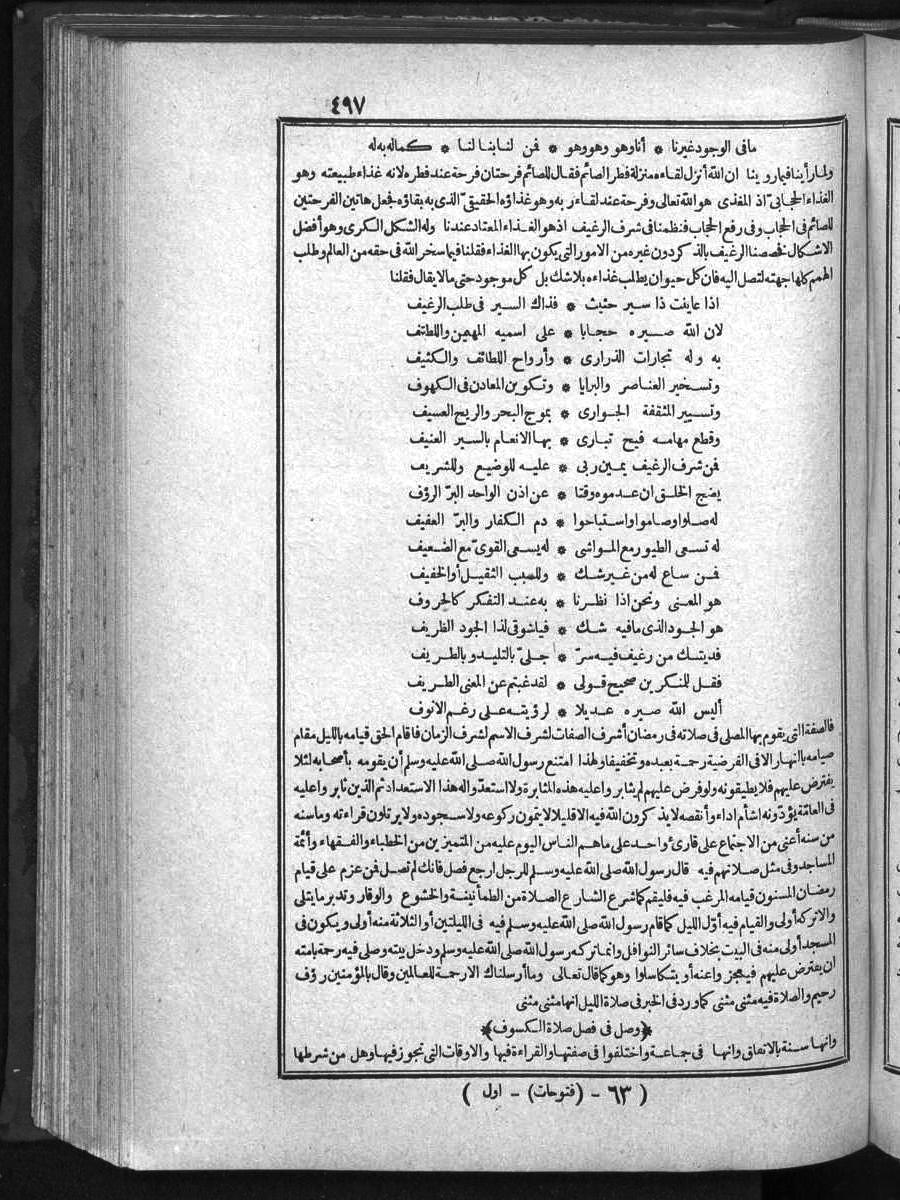 ٤٩٧
ما فى الوجود غيرنا * أنا وهو وهو وهو * فمن لنا بنا لنا * كماله به له
ولما رأينا فيما روينا ان الله أنزل لقاءه منزلة فطر الصائم فقال للصائم فرحتان فرحة عند فطره لانه غذاء طبيعته وهو
الغذاء الحجابىّ اذ المغذى هو الله تعالى وفرحة عند لقاء ربه وهو غذاؤه الحقيقىّ الذى به بقاؤه فجعل هاتين الفرحتين
للصائم فى الحجاب وفى رفع الحجاب فنظمنا فى شرف الرغيف اذ هو الغذاء المعتاد عندنا وله الشكل الكرى وهو أفضل
الاشكال فخصصنا الرغيف بالذكر دون غيره من الامور التى يكون بها الغذاء فقلنا فيما سخر الله فى حقه من العالم وطلب
الهمم كلها جهته لتصل اليه فان كل حيوان يطلب غذاءه بلا شك بل كل موجود حتى ما لا يقال فقلنا
اذا عاينت ذا سير حثيث * فذاك السير فى طلب الرغيف
لان الله صيره حجابا * على اسميه المهيمن واللطيف
به وله تجارات الذرارى * وأرواح اللطائف والكثيف
وتسخير العناصر والبرايا * وتكوين المعادن فى الكهوف
وتسيير المثقفة الجوارى * بموج البحر والريح العسيف
وقطع مهامه فيح تبارى * بها الانعام بالسير العنيف
فمن شرف الرغيف يمين ربى * عليه للوضيع وللشريف
يضج الخلق ان عدموه وقتا * عن اذن الواحد البرّ الرؤف
له صلوا وصاموا واستباحوا * دم الكفار والبرّ العفيف
له تسعى الطيور مع المواشى * له يسعى القوىّ مع الضعيف
فمن ساع له من غير شك * وللسبب الثقيل أو الخفيف
هو المعنى ونحن اذا نظرنا * به عند التفكر كالحروف
هو الجود الذى ما فيه شك * فيا شوقى لذا الجود الظريف
فديتك من رغيف فيه سرّ * جلىّ بالتليد وبالطريف
فقل للمنكرين صحيح قولى * لقد غبتم عن المعنى الطريف
أليس الله صيره عديلا * لرؤيته على رغم الانوف
فالصفة التى يقوم بها المصلى فى صلاته فى رمضان أشرف الصفات لشرف الاسم لشرف الزمان فأقام الحق قيامه بالليل مقام
صيامه بالنهار الا فى الفرضية رحمة بعبده وتخفيفا ولهذا امتنع رسول الله صلى الله عليه وسلم أن يقومه بأصحابه لئلا
يفترض عليهم فلا يطيقونه ولو فرض عليهم لم يثابروا عليه هذه المثابرة ولا استعدّوا له هذا الاستعداد ثم الذين ثابروا عليه
فى العامّة يؤدّونه اشأم اداء وأنقصه لا يذكرون الله فيه الا قليلا لا يتمون ركوعه ولا سجوده ولا يرتلون قراءته وما سنه
من سنه أعنى من الاجتماع على قارئ واحد على ما هم الناس اليوم عليه من المتميزين من الخطباء والفقهاء وأئمة
المساجد وفى مثل صلاتهم فيه قال رسول الله صلى الله عليه وسلم للرجل ارجع فصل فانك لم تصل فمن عزم على قيام
رمضان المسنون قيامه المرغب فيه فليقم كما شرع الشارع الصلاة من الطمأنينة والخشوع والوقار وتدبر ما يتلى
والا تركه أولى والقيام فيه أوّل الليل كما قام رسول الله صلى الله عليه وسلم فيه فى الليلتين أو الثلاثة منه أولى ويكون فى
المسجد أولى منه فى البيت بخلاف سائر النوافل وانما تركه رسول الله صلى الله عليه وسلم ودخل بيته وصلى فيه رحمة بامته
ان يفترض عليهم فيعجزوا عنه أو يتكاسلوا وهو كما قال تعالى وما أرسلناك الا رحمة للعالمين وقال بالمؤمنين رؤف
رحيم والصلاة فيه مثنى مثنى كما ورد فى الخبر فى صلاة الليل انها مثنى مثنى
﴿وصل فى فصل صلاة الكسوف﴾
وانها سنة بالاتفاق وانها فى جماعة واختلفوا فى صفتها والقراءة فيها والاوقات التى تجوز فيها وهل من شرطها
(٦٣ - (فتوحات) - اول)